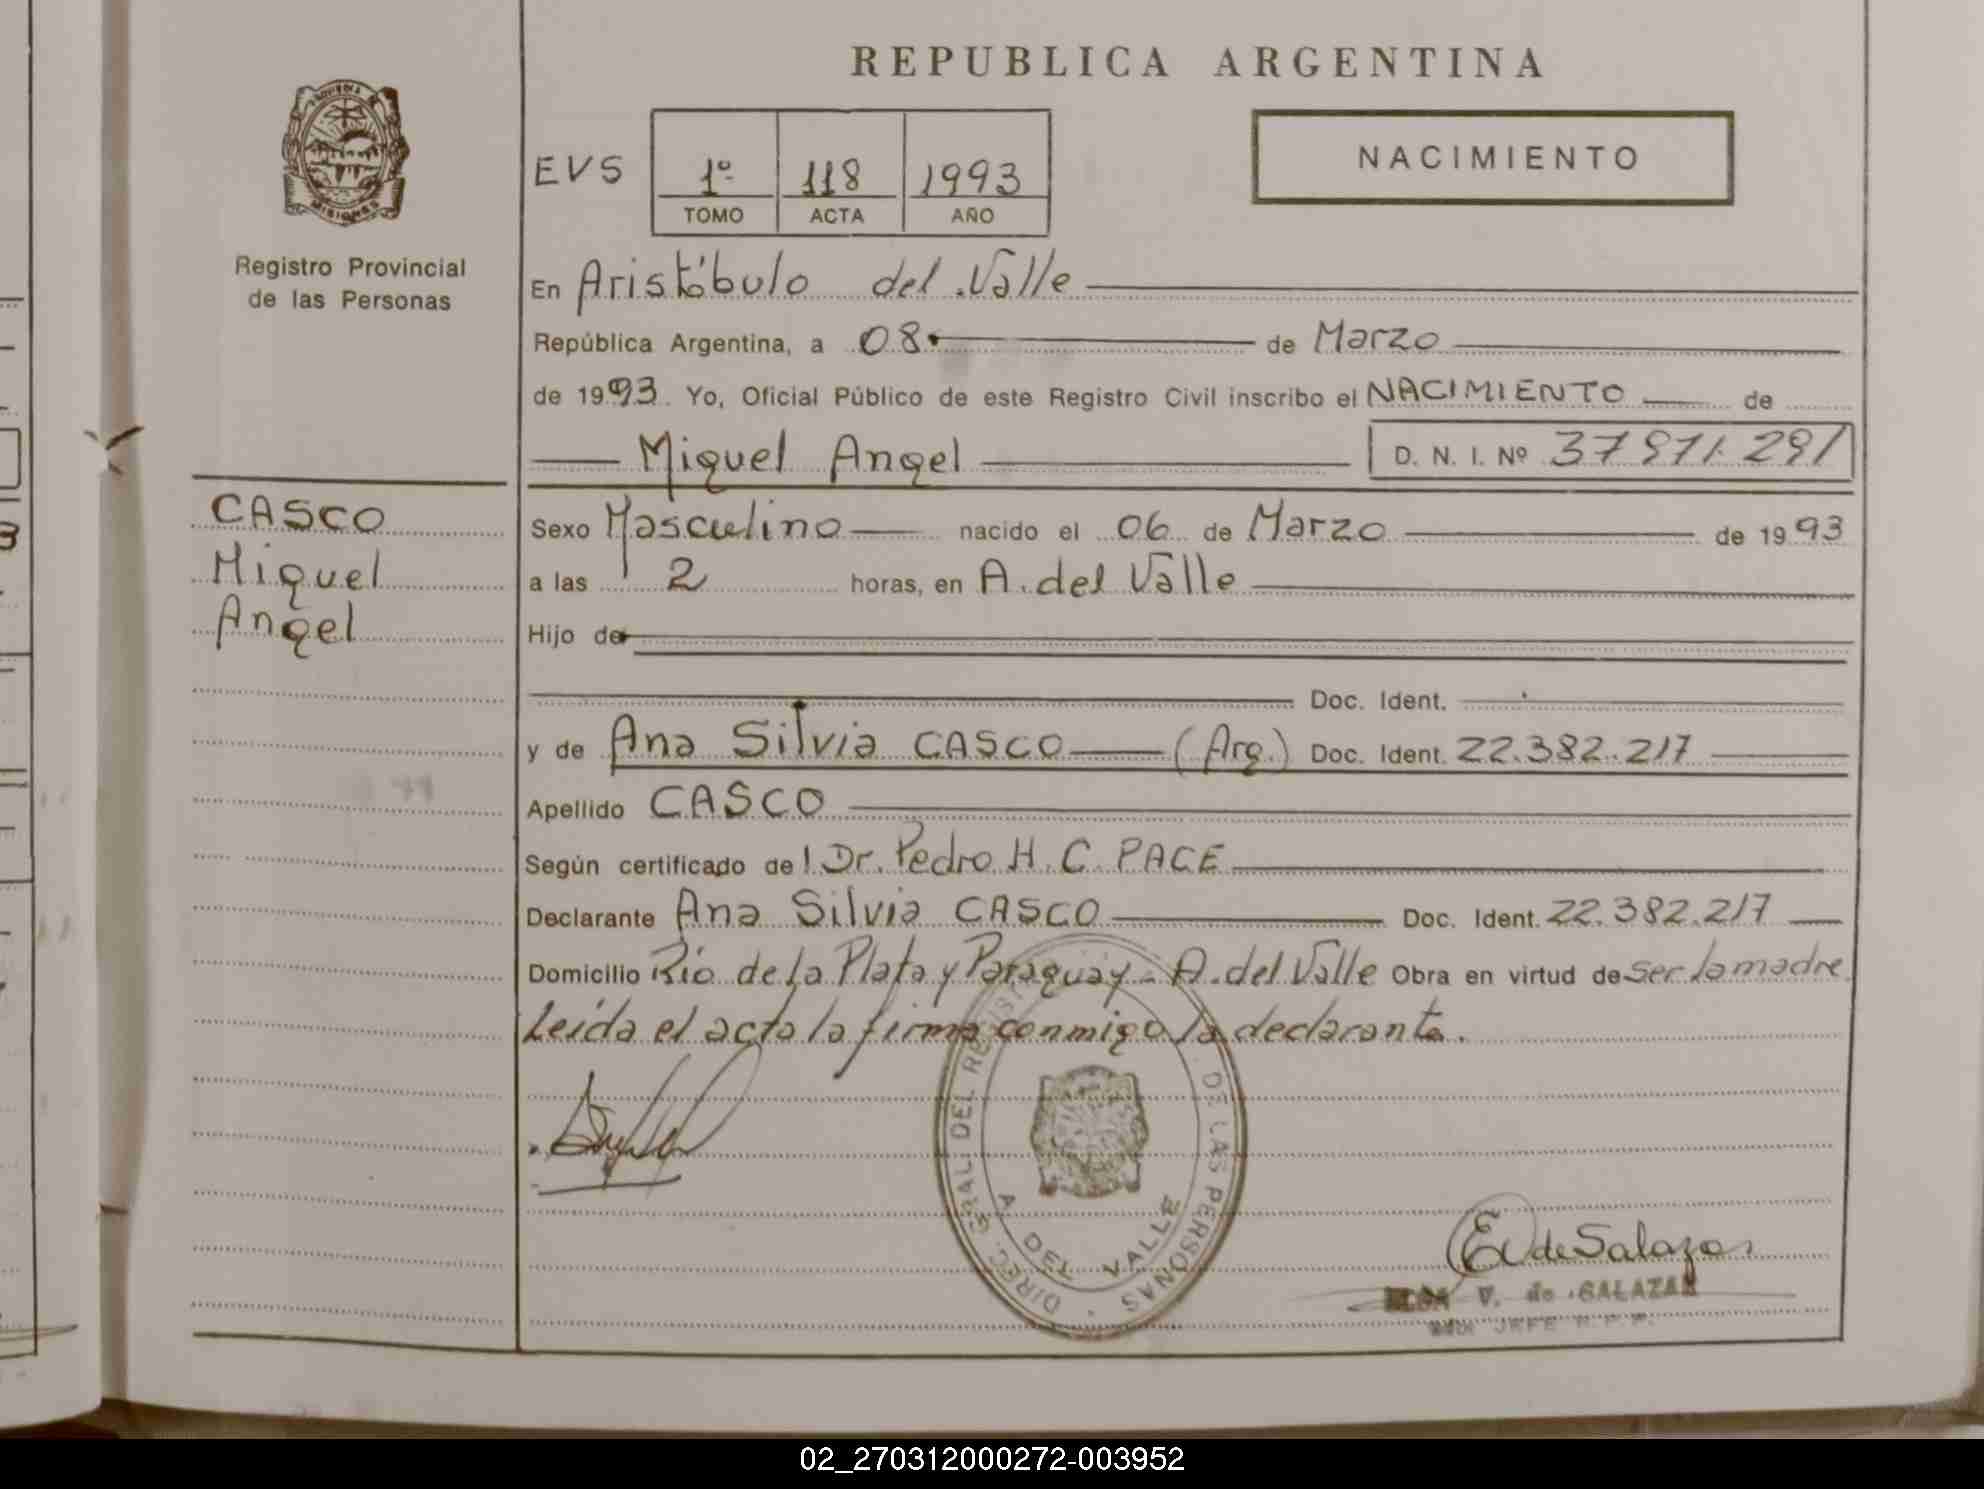 REPUBLICA ARGENTINA
EVS
1º 118 1993
TOMO ACTA AÑO
NACIMIENTO
MISIONES
Registro Provincial
de las Personas
En Aristóbulo del Valle
República Argentina, a 08 de Marzo
de 1993. Yo, Oficial Público de este Registro Civil inscribo el NACIMIENTO de
Miguel Angel D. N. I. Nº 37 971. 291
CASCO
Miguel
Angel
Sexo Masculino nacido el 06 de Marzo de 1993
a las 2 horas, en A. del Valle
Hijo de
Doc. Ident.
y de Ana Silvia CASCO (Arg.) Doc. Ident. 22.382.217
Apellido CASCO
Según certificado de Dr. Pedro H. C. PACE
Declarante Ana Silvia CASCO Doc. Ident. 22.382.217
Domicilio Río de la Plata y Paraguay - A. del Valle Obra en virtud de ser la madre.
Leída el acta la firma conmigo la declarante.
DIREC. GRAL. DEL DE LAS PERSONAS
A. DEL VALLE
E V de Salazar
V. de SALAZAR
JEFE R.P.P.
02_270312000272-003952